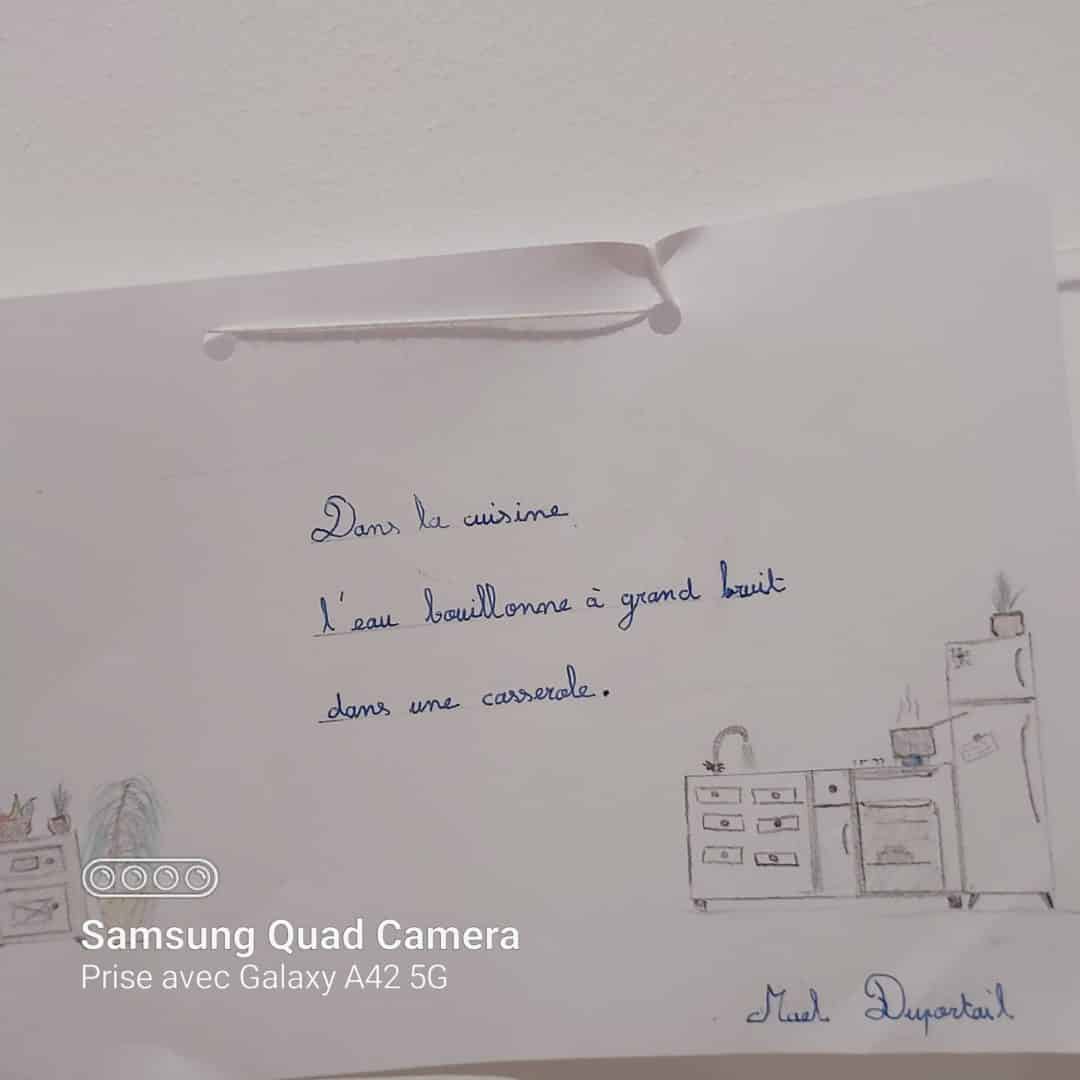 Dans la cuisine
l'eau bouillonne à grand bruit
dans une casserole.
Samsung Quad Camera
Prise avec Galaxy A42 5G
Mael Duportail